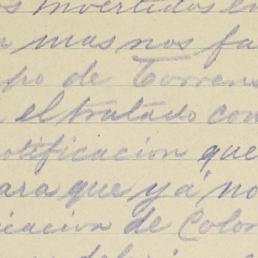 s invertidos en
mas nos fa
po de Torrens
el tratado con
otificacion que
ara que yá no
iacion de Colom